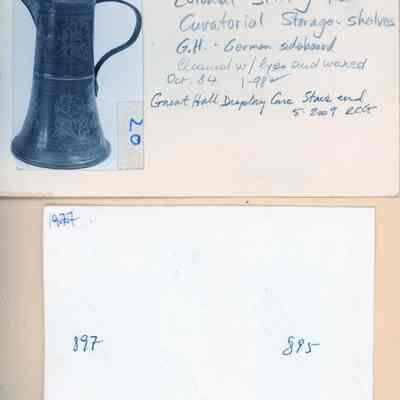 Curatorial Storage - shelves
G.H. - German sideboard
Cleaned w/ Lysa and waxed
Oct. 84 1-98 ✓
Great Hall Display Case Stairs end
5-2009 RCG
20
1977
897 895